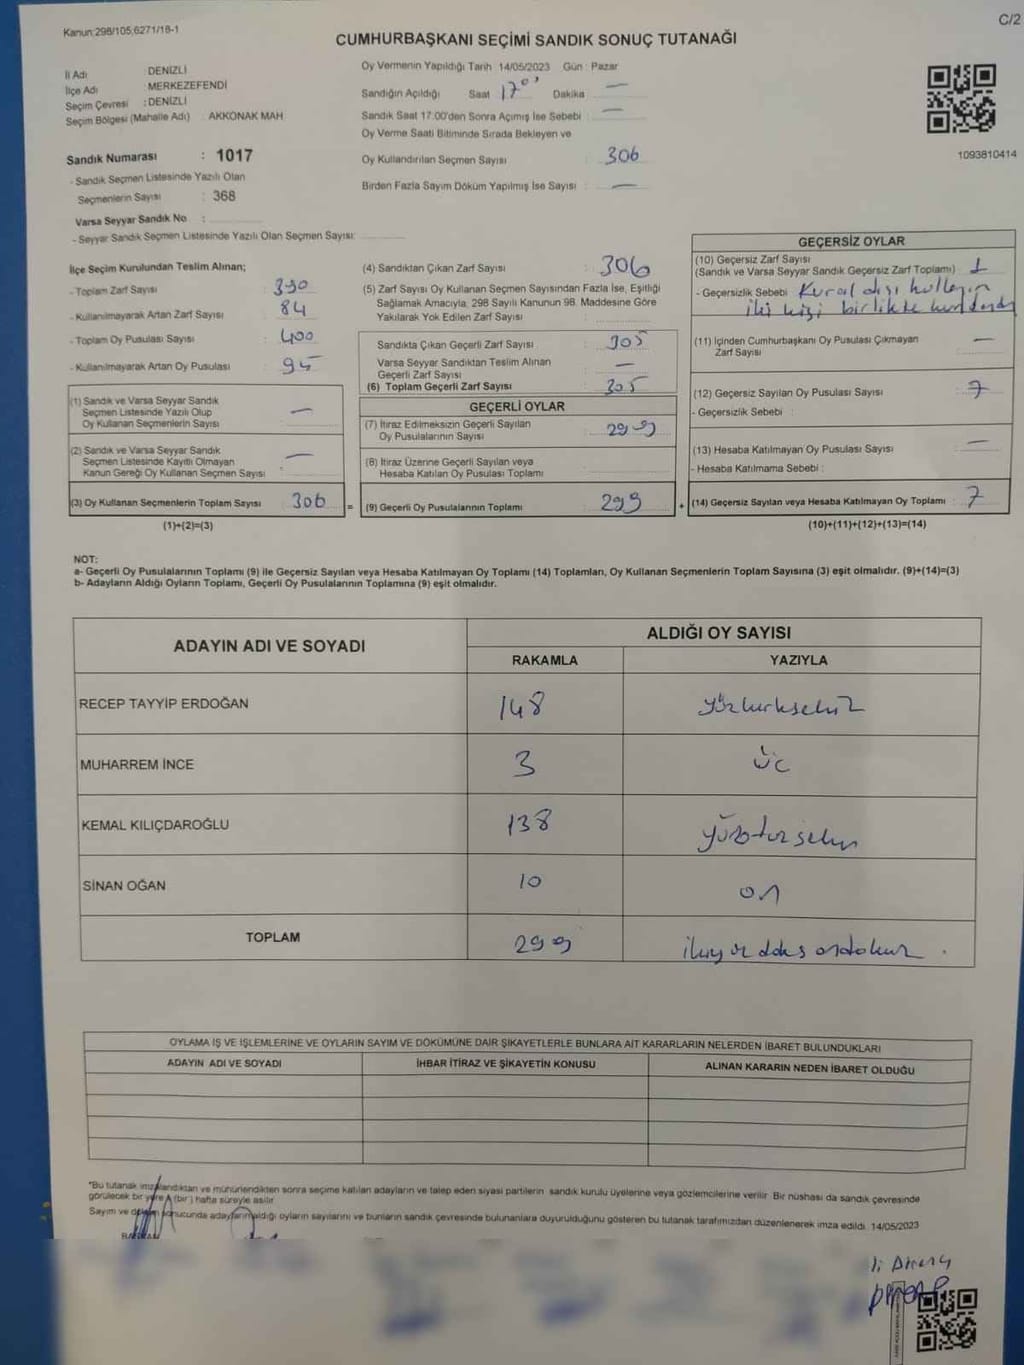 Kanun:298/105;6271/18-1
C/2
CUMHURBAŞKANI SEÇİMİ SANDIK SONUÇ TUTANAĞI
İl Adı : DENİZLİ
İlçe Adı : MERKEZEFENDİ
Seçim Çevresi : DENİZLİ
Seçim Bölgesi (Mahalle Adı) : AKKONAK MAH
Sandık Numarası : 1017
- Sandık Seçmen Listesinde Yazılı Olan
Seçmenlerin Sayısı : 368
Varsa Seyyar Sandık No :
- Seyyar Sandık Seçmen Listesinde Yazılı Olan Seçmen Sayısı:
Oy Vermenin Yapıldığı Tarih 14/05/2023 Gün : Pazar
Sandığın Açıldığı Saat 17⁰⁰ Dakika —
Sandık Saat 17.00'den Sonra Açımış İse Sebebi : —
Oy Verme Saati Bitiminde Sırada Bekleyen ve
Oy Kullandırılan Seçmen Sayısı : 306
Birden Fazla Sayım Döküm Yapılmış İse Sayısı : —
1093810414
İlçe Seçim Kurulundan Teslim Alınan;
- Toplam Zarf Sayısı : 390
- Kullanılmayarak Artan Zarf Sayısı : 84
- Toplam Oy Pusulası Sayısı : 400
- Kullanılmayarak Artan Oy Pusulası : 95
(1) Sandık ve Varsa Seyyar Sandık
Seçmen Listesinde Yazılı Olup
Oy Kullanan Seçmenlerin Sayısı : —
(2) Sandık ve Varsa Seyyar Sandık
Seçmen Listesinde Kayıtlı Olmayan
Kanun Gereği Oy Kullanan Seçmen Sayısı : —
(3) Oy Kullanan Seçmenlerin Toplam Sayısı : 306 =
(1)+(2)=(3)
(4) Sandıktan Çıkan Zarf Sayısı : 306
(5) Zarf Sayısı Oy Kullanan Seçmen Sayısından Fazla İse, Eşitliği
Sağlamak Amacıyla, 298 Sayılı Kanunun 98. Maddesine Göre
Yakılarak Yok Edilen Zarf Sayısı :
Sandıkta Çıkan Geçerli Zarf Sayısı : 305
Varsa Seyyar Sandıktan Teslim Alınan
Geçerli Zarf Sayısı : —
(6) Toplam Geçerli Zarf Sayısı : 305
GEÇERLİ OYLAR
(7) İtiraz Edilmeksizin Geçerli Sayılan
Oy Pusulalarının Sayısı : 299
(8) İtiraz Üzerine Geçerli Sayılan veya
Hesaba Katılan Oy Pusulası Toplamı :
(9) Geçerli Oy Pusulalarının Toplamı : 299 +
GEÇERSİZ OYLAR
(10) Geçersiz Zarf Sayısı
(Sandık ve Varsa Seyyar Sandık Geçersiz Zarf Toplamı) 1
- Geçersizlik Sebebi : Kural dışı
iki kişi birlikte
(11) İçinden Cumhurbaşkanı Oy Pusulası Çıkmayan
Zarf Sayısı : —
(12) Geçersiz Sayılan Oy Pusulası Sayısı : 7
- Geçersizlik Sebebi :
(13) Hesaba Katılmayan Oy Pusulası Sayısı : —
- Hesaba Katılmama Sebebi :
(14) Geçersiz Sayılan veya Hesaba Katılmayan Oy Toplamı : 7
(10)+(11)+(12)+(13)=(14)
NOT:
a- Geçerli Oy Pusulalarının Toplamı (9) ile Geçersiz Sayılan veya Hesaba Katılmayan Oy Toplamı (14) Toplamları, Oy Kullanan Seçmenlerin Toplam Sayısına (3) eşit olmalıdır. (9)+(14)=(3)
b- Adayların Aldığı Oyların Toplamı, Geçerli Oy Pusulalarının Toplamına (9) eşit olmalıdır.
ADAYIN ADI VE SOYADI
ALDIĞI OY SAYISI
RAKAMLA YAZIYLA
RECEP TAYYİP ERDOĞAN 148 yüzkırksekiz
MUHARREM İNCE 3 üç
KEMAL KILIÇDAROĞLU 138 yüzotuzsekiz
SİNAN OĞAN 10 on
TOPLAM 299 ikiyüzdoksandokuz
OYLAMA İŞ VE İŞLEMLERİNE VE OYLARIN SAYIM VE DÖKÜMÜNE DAİR ŞİKAYETLERLE BUNLARA AİT KARARLARIN NELERDEN İBARET BULUNDUKLARI
ADAYIN ADI VE SOYADI İHBAR İTİRAZ VE ŞİKAYETİN KONUSU ALINAN KARARIN NEDEN İBARET OLDUĞU
*Bu tutanak imzalandıktan ve mühürlendikten sonra seçime katılan adayların ve talep eden siyasi partilerin sandık kurulu üyelerine veya gözlemcilerine verilir. Bir nüshası da sandık çevresinde
görülecek bir yere (bir) hafta süreyle asılır.
Sayım ve döküm sonucunda adayların aldığı oyların sayılarını ve bunların sandık çevresinde bulunanlara duyurulduğunu gösteren bu tutanak tarafımızdan düzenlenerek imza edildi. 14/05/2023